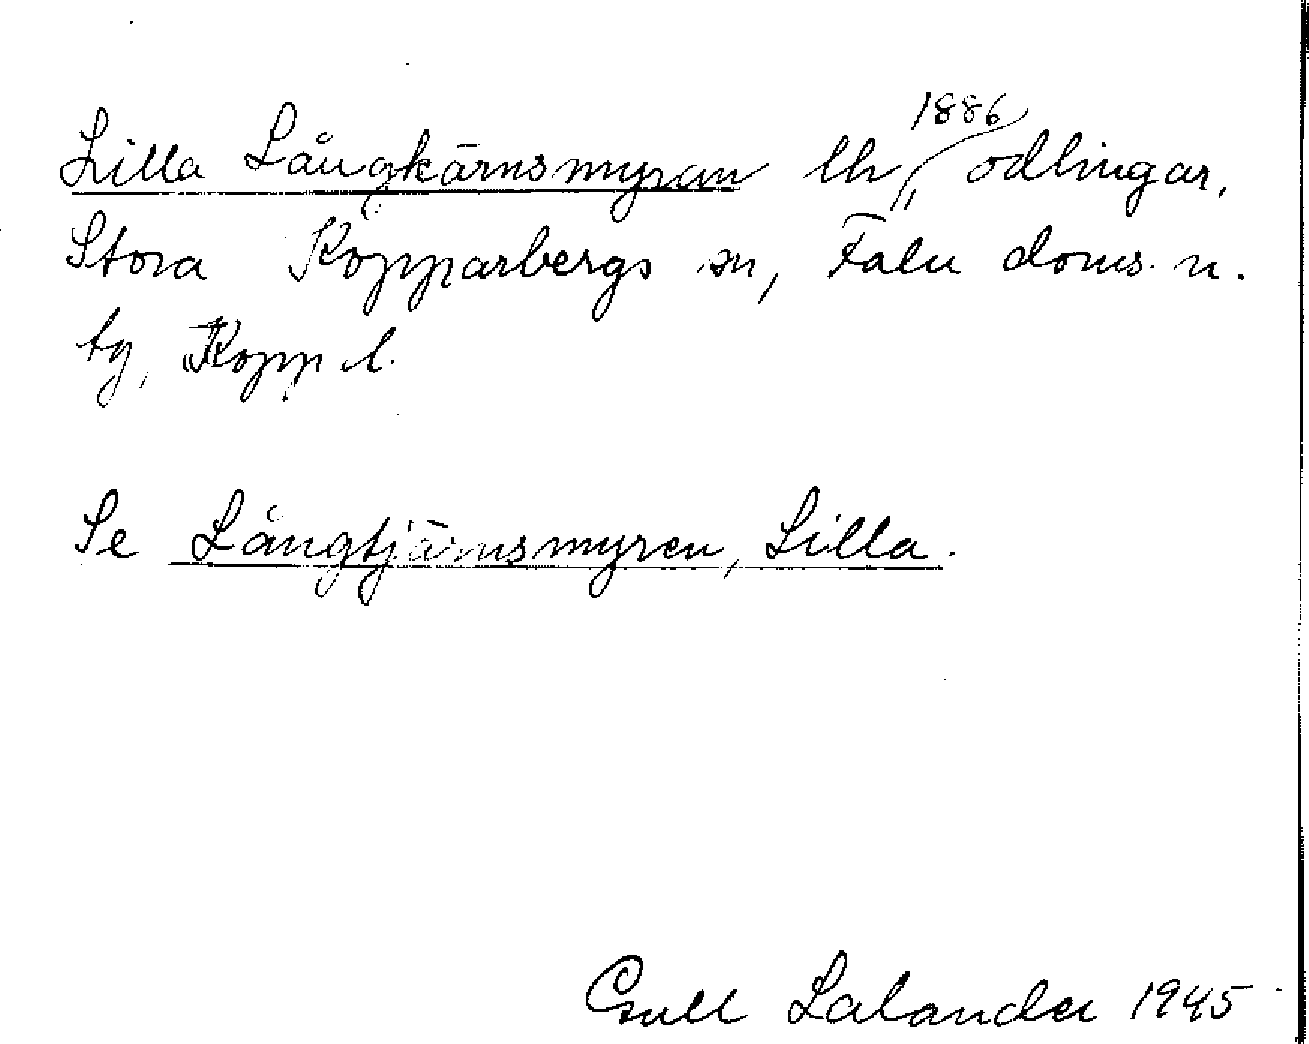 Lilla Långkärnsmyran lh, 1886 odlingar,
Stora Kopparbergs sn, Falu doms. u.
tg, Kopp l.
Se Långtjärnsmyren, Lilla.
Gull Lalander 1945